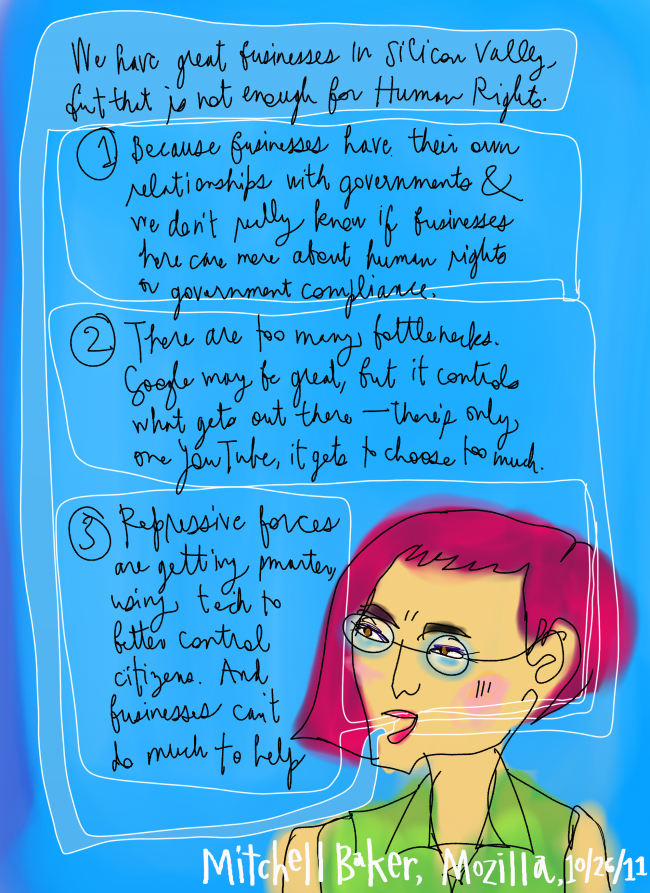 We have great businesses in Silicon Valley,
but that is not enough for Human Rights.
1 Because businesses have their own
relationships with governments &
we don't really know if businesses
here care more about human rights
or government compliance.
2 There are too many bottlenecks.
Google may be great, but it controls
what gets out there — there's only
one YouTube, it gets to choose too much.
3 Repressive forces
are getting smarter,
using tech to
better control
citizens. And
businesses can't
do much to help
Mitchell Baker, Mozilla, 10/26/11